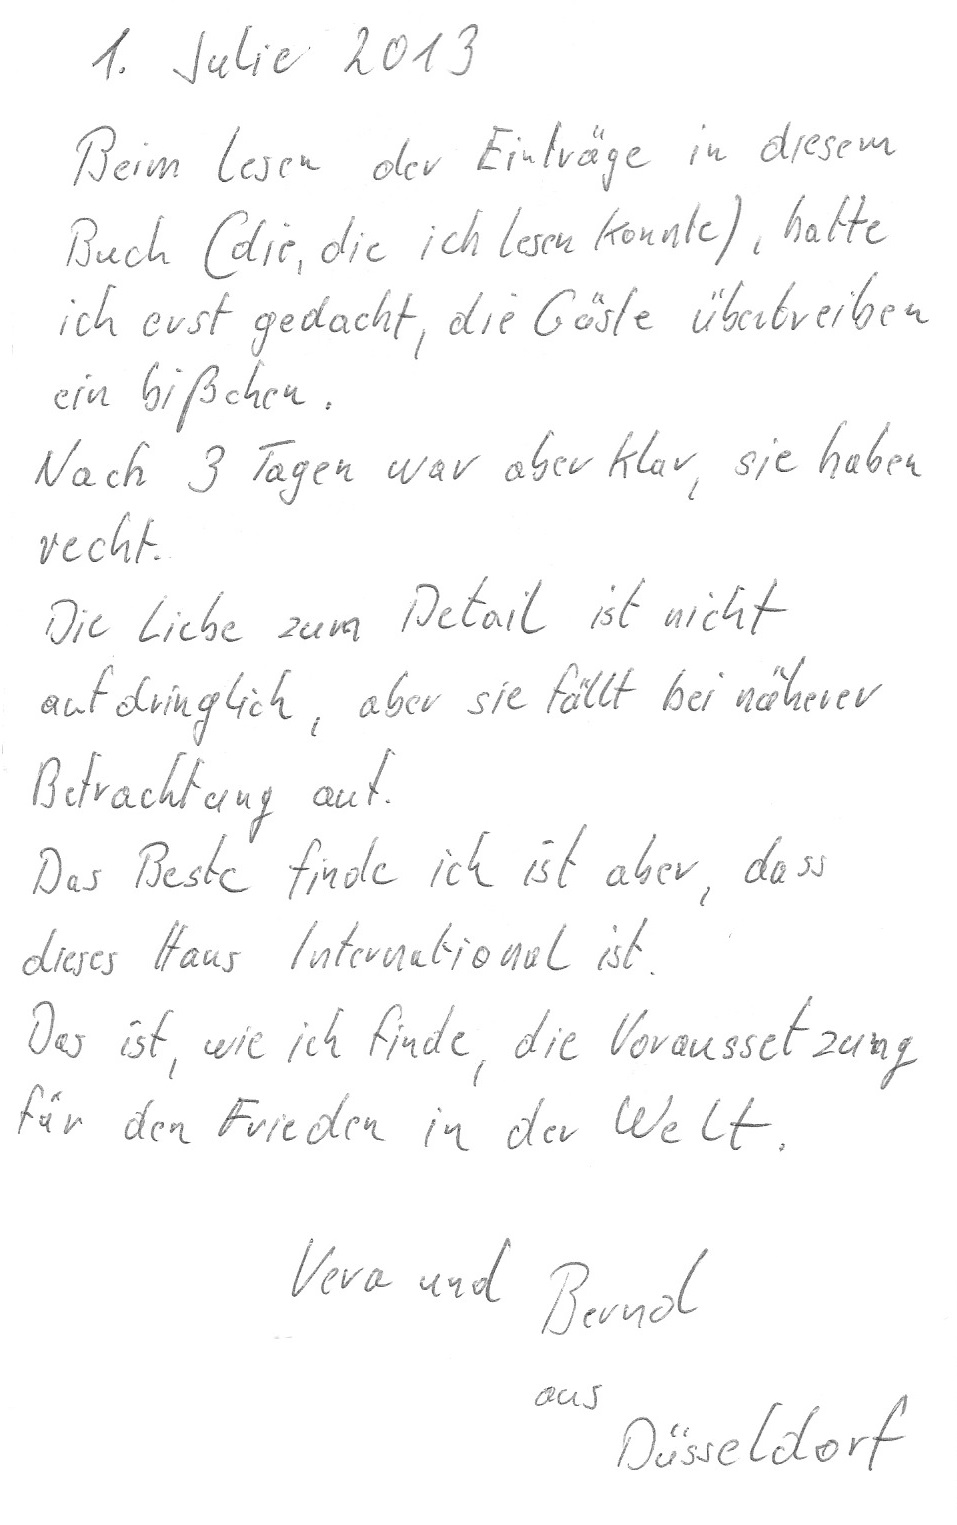 1. Julie 2013
Beim lesen der Einträge in diesem
Buch (die, die ich lesen konnte), hatte
ich erst gedacht, die Gäste übertreiben
ein bißchen.
Nach 3 Tagen war aber klar, sie haben
recht.
Die Liebe zum Detail ist nicht
aufdringlich, aber sie fällt bei näherer
Betrachtung auf.
Das Beste finde ich ist aber, dass
dieses Haus International ist.
Das ist, wie ich finde, die Voraussetzung
für den Frieden in der Welt.
Vera und Bernd
aus
Düsseldorf